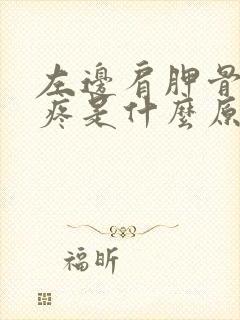 左邊肩胛骨
疼是什麼原
福昕